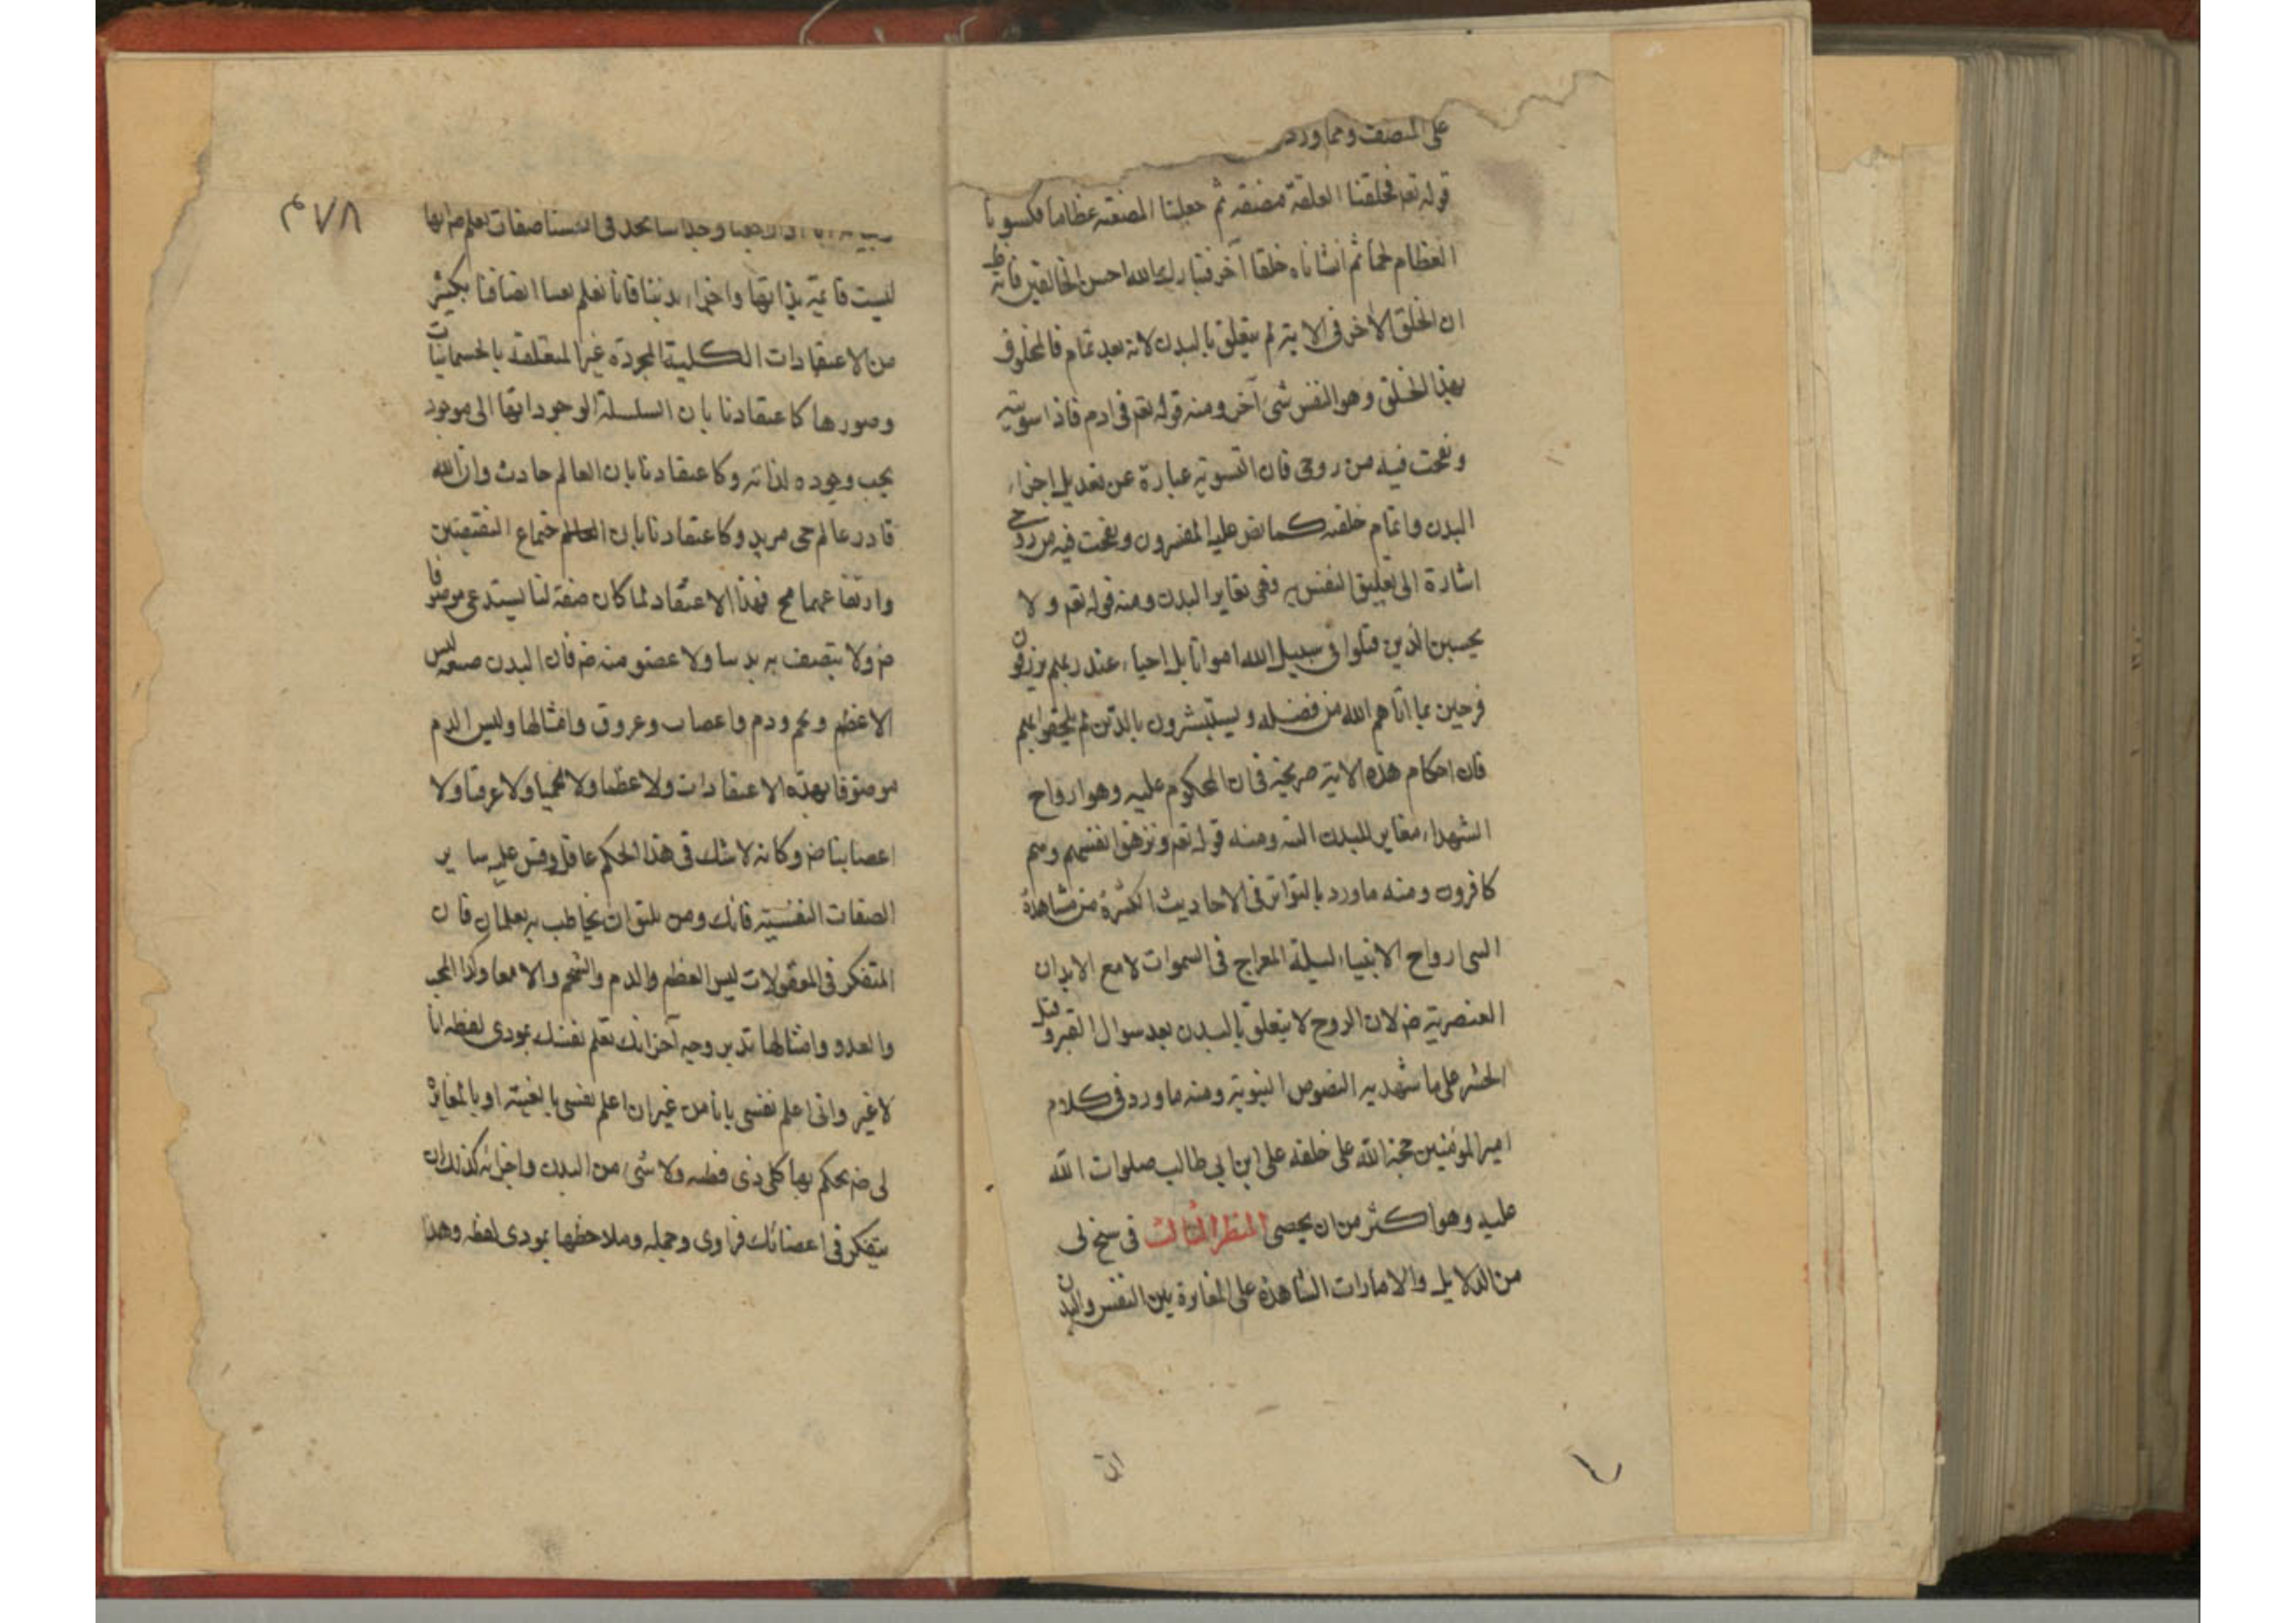 على المنصف ومما ورد
قوله تعه فخلقنا العلقة مضغة ثم جعلنا المضغة عظاما فكسونا
العظام لحما ثم انشاناه خلقا آخر فتبارك الله احسن الخالقين فانه ظ
ان الخلق الاخر في الاية لم يتعلق بالبدن لانه بعد تمام فالمخلوق
بهذا الخلق وهو النفس شئ آخر ومنه قوله تعه في ادم فاذا سويته
ونفخت فيه من روحى فان التسوية عبارة عن تعديل اجزاء
البدن واتمام خلقه كما نص عليه المفسرون ونفخت فيه من روحى
اشارة الى تعليق النفس به فهى تغاير البدن ومنه قوله تعه ولا
يحسبن الذين قتلوا فى سبيل الله امواتا بل احياء عند ربهم يرزقون
فرحين بما اتاهم الله من فضله ويستبشرون بالذين لم يلحقوا بهم
فان احكام هذه الاية صريحة فى ان المحكوم عليه وهو ارواح
الشهداء مغاير للبدن البته ومنه قوله تعه وتزهق انفسهم وهم
كافرون ومنه ما ورد بالتواتر فى الاحاديث الكثيرة من مشاهدة
النبى ارواح الانبياء ليلة المعراج فى السموات لا مع الابدان
العنصرية ضه لان الروح لا يتعلق بالبدن بعد سوال القبر وقبل
الحشر على ما شهد به النصوص النبوية ومنه ما ورد فى كلام
امير المؤمنين حجة الله على خلقه على ابن ابى طالب صلوات الله
عليه وهو اكثر من ان يحصى المنظر الثالث فى سنح لى
من الدلايل والامارات الشاهدة على المغايرة بين النفس والبدن
ان
٤٧٨
وجدانيا نجد فى انفسنا صفات نعلم ضه انها
ليست قائمة بذاتها واجزاء بدننا فانا نعلم اتصافنا بكثير
من الاعتقادات الكلية المجردة غير المتعلقة بالجسمانيات
وصورها كاعتقادنا بان السلسلة الوجود انتها الى موجود
يجب وجوده لذاته وكاعتقادنا بان العالم حادث وان الله
قادر عالم حى مريد وكاعتقادنا بان اجتماع النقيضين
وارتفاعهما مح فهذا الاعتقاد لما كان صفة لنا يستدعى موصوفا
ضه ولا يتصف به بدننا ولا عضو منه ضه فان البدن ليس
الا عظم ولحم ودم واعصاب وعروق وامثالها وليس الدم
موصوفا بهذه الاعتقادات ولا عظما ولا لحميا ولا عرقنا ولا
اعصابنا ضه وكانه لا شك فى هذا الحكم عاقل وقس عليه ساير
الصفات النفسية فانك ومن يخاطب به يعلمان ان
المتفكر فى المعقولات ليس العظم والدم والشحم والامعا وكذا المحب
والعدو وامثالها وجه آخر انك تعلم نفسك بمودى لفظه انا
لا غير وانى اعلم نفسى بانا من غير ان اعلم نفسى بالغيبة او بالمغايرة
لى ضه يحكم بها كل ذى فطنه ولا شى من البدن واجزائه كذلك
يتفكر فى اعضائك فرادى وجمله وملاحظها بمودى لفظه وهذا